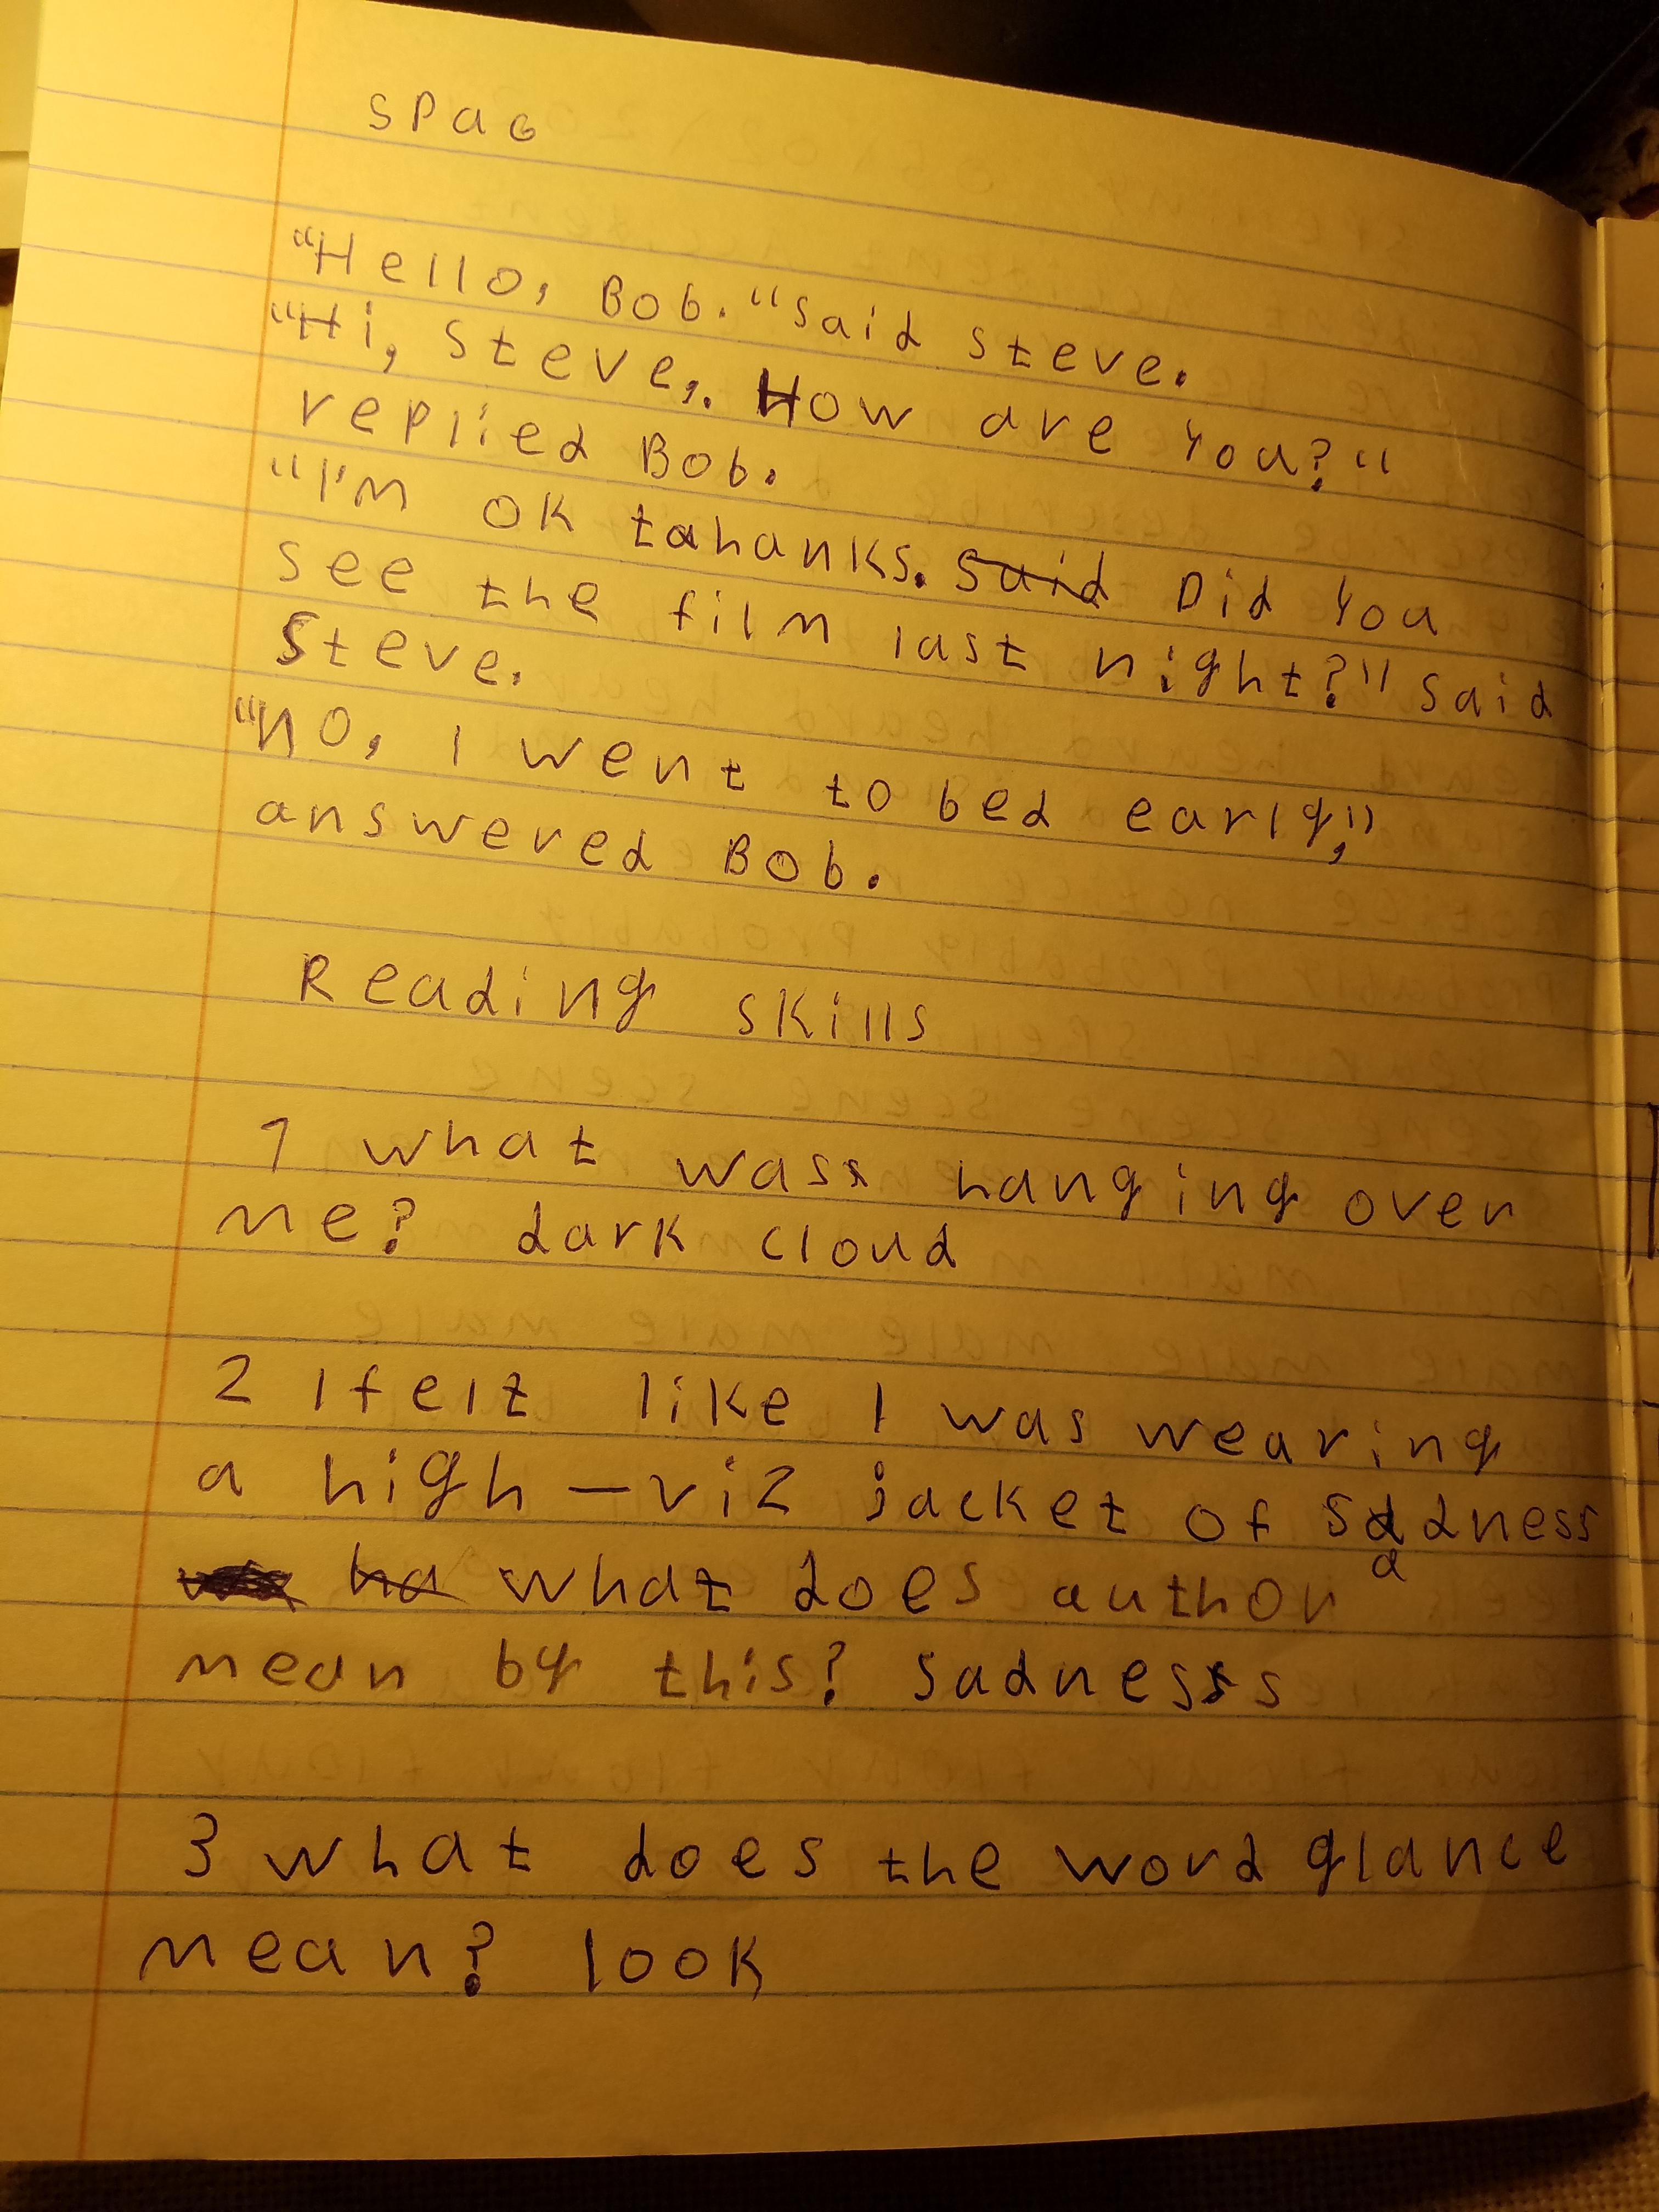 SPaG
"Hello, Bob." said steve.
"Hi, Steve,. How are You?"
replied Bob.
"I'm OK tahanks. Said Did You
see the film last night?" said
Steve.
"No, I went to bed early,"
answered Bob.
Reading skills
1 what wass hanging over
me? dark cloud
2 I felt like I was wearing
a high-viz jacket of sadness
ha what does author
mean by this? sadness
3 what does the word glance
mean? look